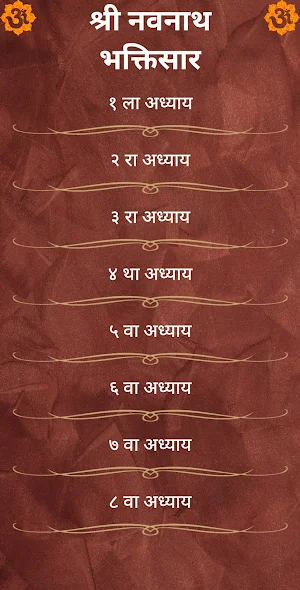 ॐ ॐ
श्री नवनाथ
भक्तिसार
१ ला अध्याय
२ रा अध्याय
३ रा अध्याय
४ था अध्याय
५ वा अध्याय
६ वा अध्याय
७ वा अध्याय
८ वा अध्याय